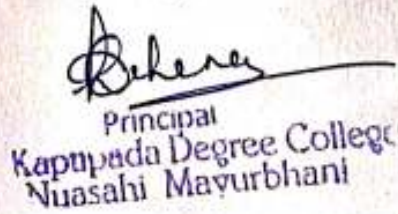 Principal
Kapupada Degree College
Nuasahi Mayurbhanj